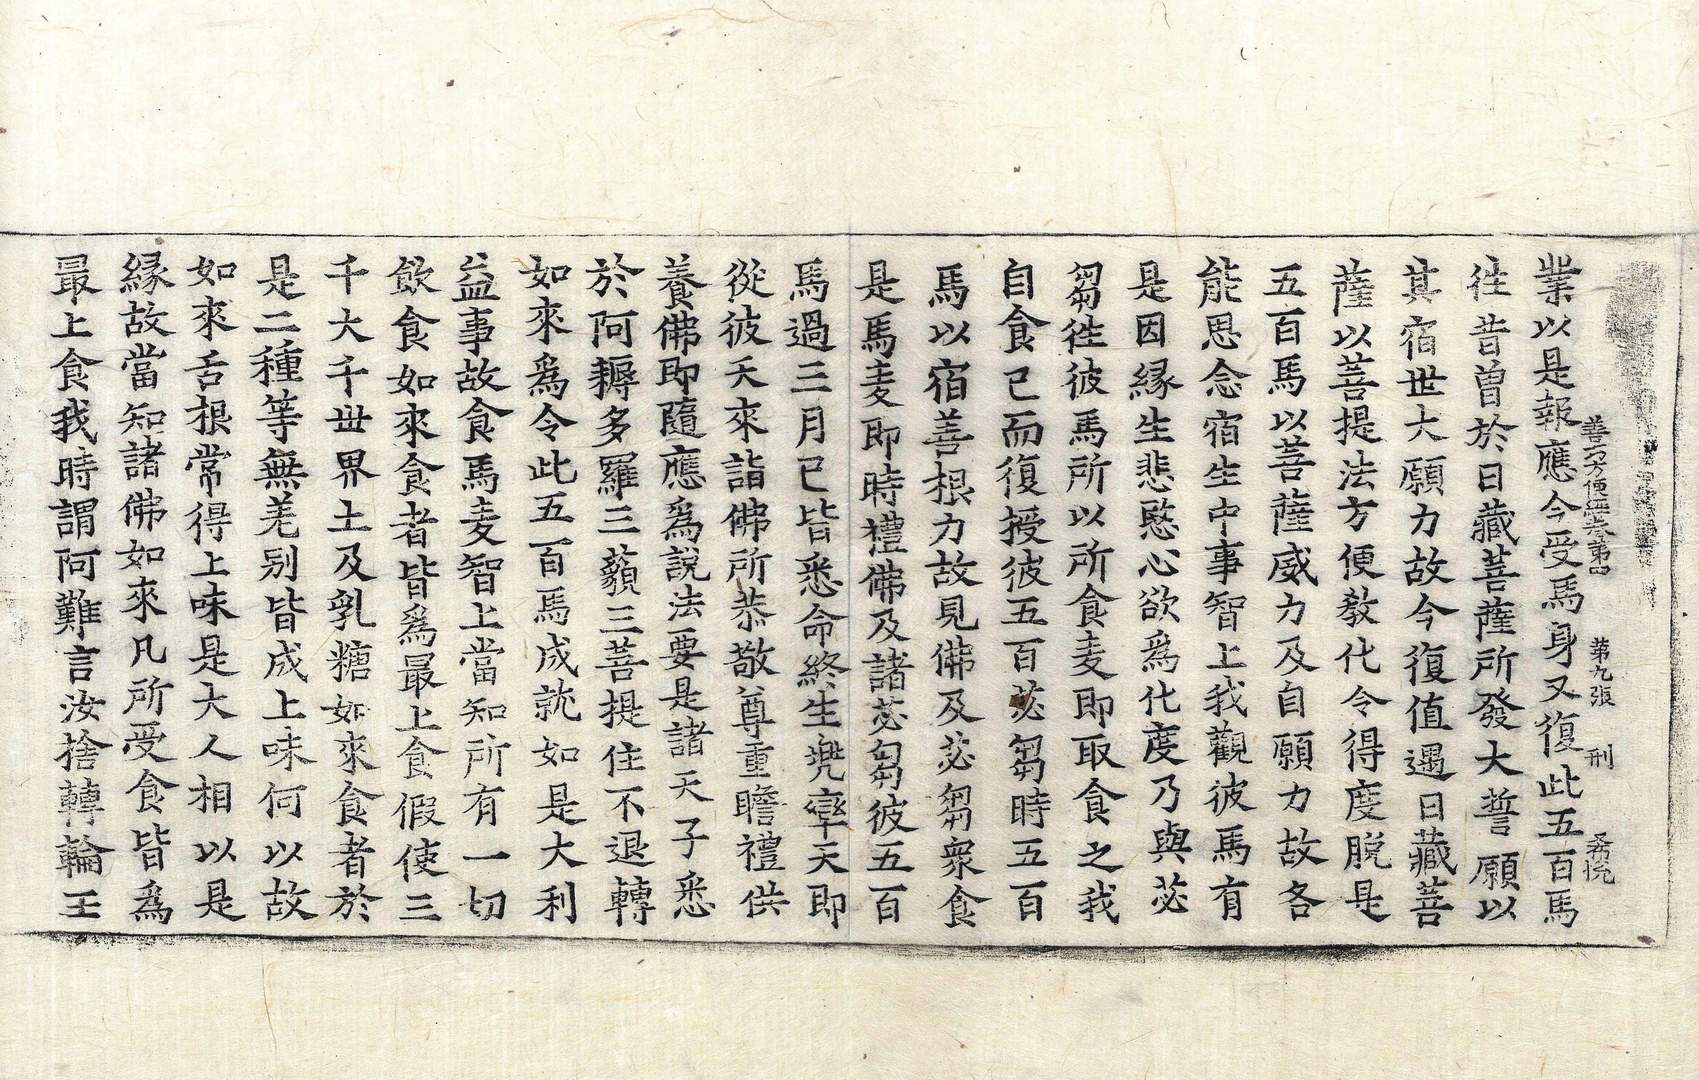 善巧方便經卷第四 第九張 刑
業以是報應今受馬身又復此五百馬
往昔曽於日藏菩薩所發大誓願以
其宿世大願力故今復值遇日藏菩
薩以菩提法方便教化令得度脫是
五百馬以菩薩威力及自願力故各
能思念宿生中事智上我觀彼馬有
是因縁生悲愍心欲爲化度乃與苾
芻徃彼馬所以所食麦即取食之我
自食已而復授彼五百苾芻時五百
馬以宿善根力故見佛及苾芻衆食
是馬麦即時禮佛及諸苾芻彼五百
馬過三月已皆悉命終生兠率天即
從彼天來詣佛所恭敬尊重瞻禮供
養佛即隨應爲說法要是諸天子悉
於阿耨多羅三藐三菩提住不退轉
如來爲令此五百馬成就如是大利
益事故食馬麦智上當知所有一切
飲食如來食者皆爲最上食假使三
千大千世界土及乳糖如來食者於
是二種等無差别皆成上味何以故
如來舌根常得上味是大人相以是
縁故當知諸佛如來凡所受食皆爲
最上食我時謂阿難言汝捨轉輪王